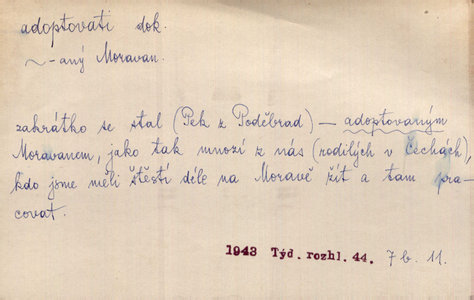 adoptovati dok.
~-aný Moravan.
zakrátko se stal (Pek z Poděbrad) — adoptovaným
Moravanem, jako tak mnozí z nás (rodilých v Čechách),
kdo jsme měli štěstí déle na Moravě žít a tam pra-
covat.
1943 Týd. rozhl. 44. 7 b. 11.